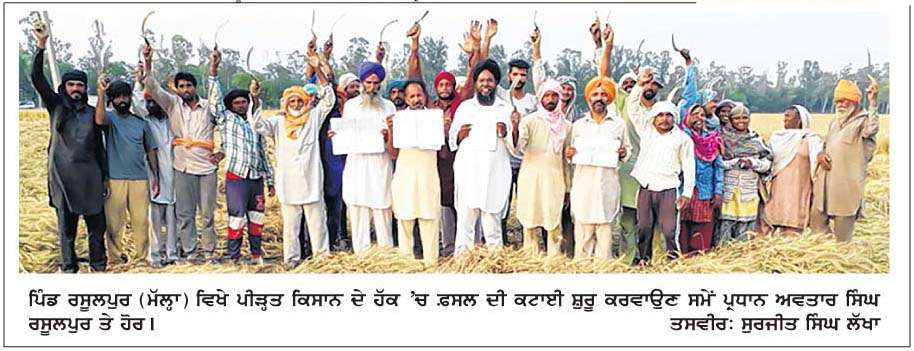 ਪਿੰਡ ਰਸੂਲਪੁਰ (ਮੱਲ੍ਹਾ) ਵਿਖੇ ਪੀੜ੍ਹਤ ਕਿਸਾਨ ਦੇ ਹੱਕ 'ਚ ਫ਼ਸਲ ਦੀ ਕਟਾਈ ਸ਼ੁਰੂ ਕਰਵਾਉਣ ਸਮੇਂ ਪ੍ਰਧਾਨ ਅਵਤਾਰ ਸਿੰਘ
ਰਸੂਲਪੁਰ ਤੇ ਹੋਰ। ਤਸਵੀਰ: ਸੁਰਜੀਤ ਸਿੰਘ ਲੱਖਾ